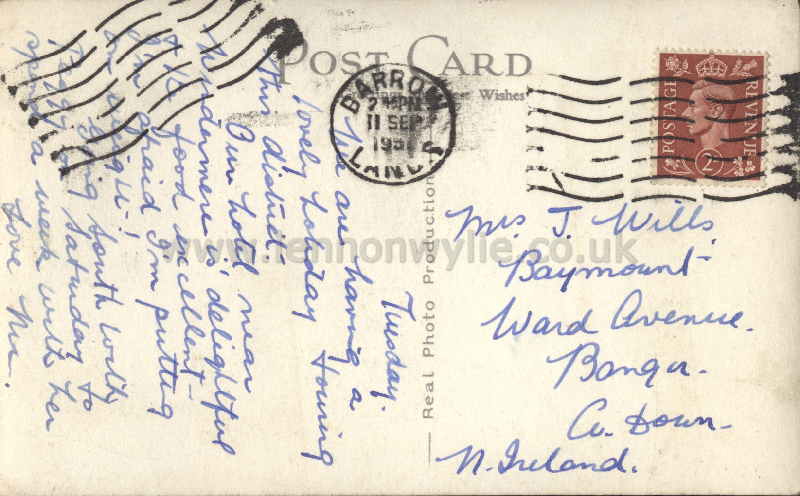 POST CARD
Best Wishes
BARROW
11 SEP
195
LANCS
POSTAGE
REVENUE
2D
Real Photo Production
www.lennonwylie.co.uk
Tuesday.
We are having a
lovely holiday touring
this district.
Our hotel near
Windermere is delightful
& the food excellent -
I'm afraid I'm putting
on weight!
Going South with
Peggy on Saturday to
spend a week with her
Love
Mrs J. Wills,
Baymount
Ward Avenue.
Bangor.
Co. Down.
N. Ireland.